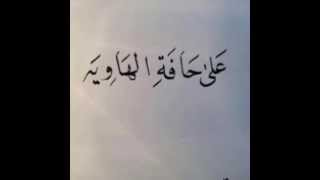 عَلىٰ حَافَةِ الهَاوِيَه